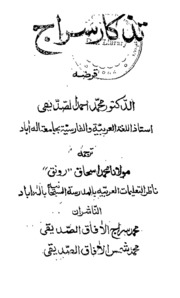 تذكار سراج
قرضه
الدكتور محمد اسماعيل الصديقي
استاذ اللغة العربية والفارسية بجامعة اله آباد
ترجمه
مولانا محمد اسحاق "رونق"
ناظر التعليمات العربية بالمدرسة السبحانية باله آباد
الناشران
محمد سراج الآفاق الصديقي
محمد شمس الآفاق الصديقي